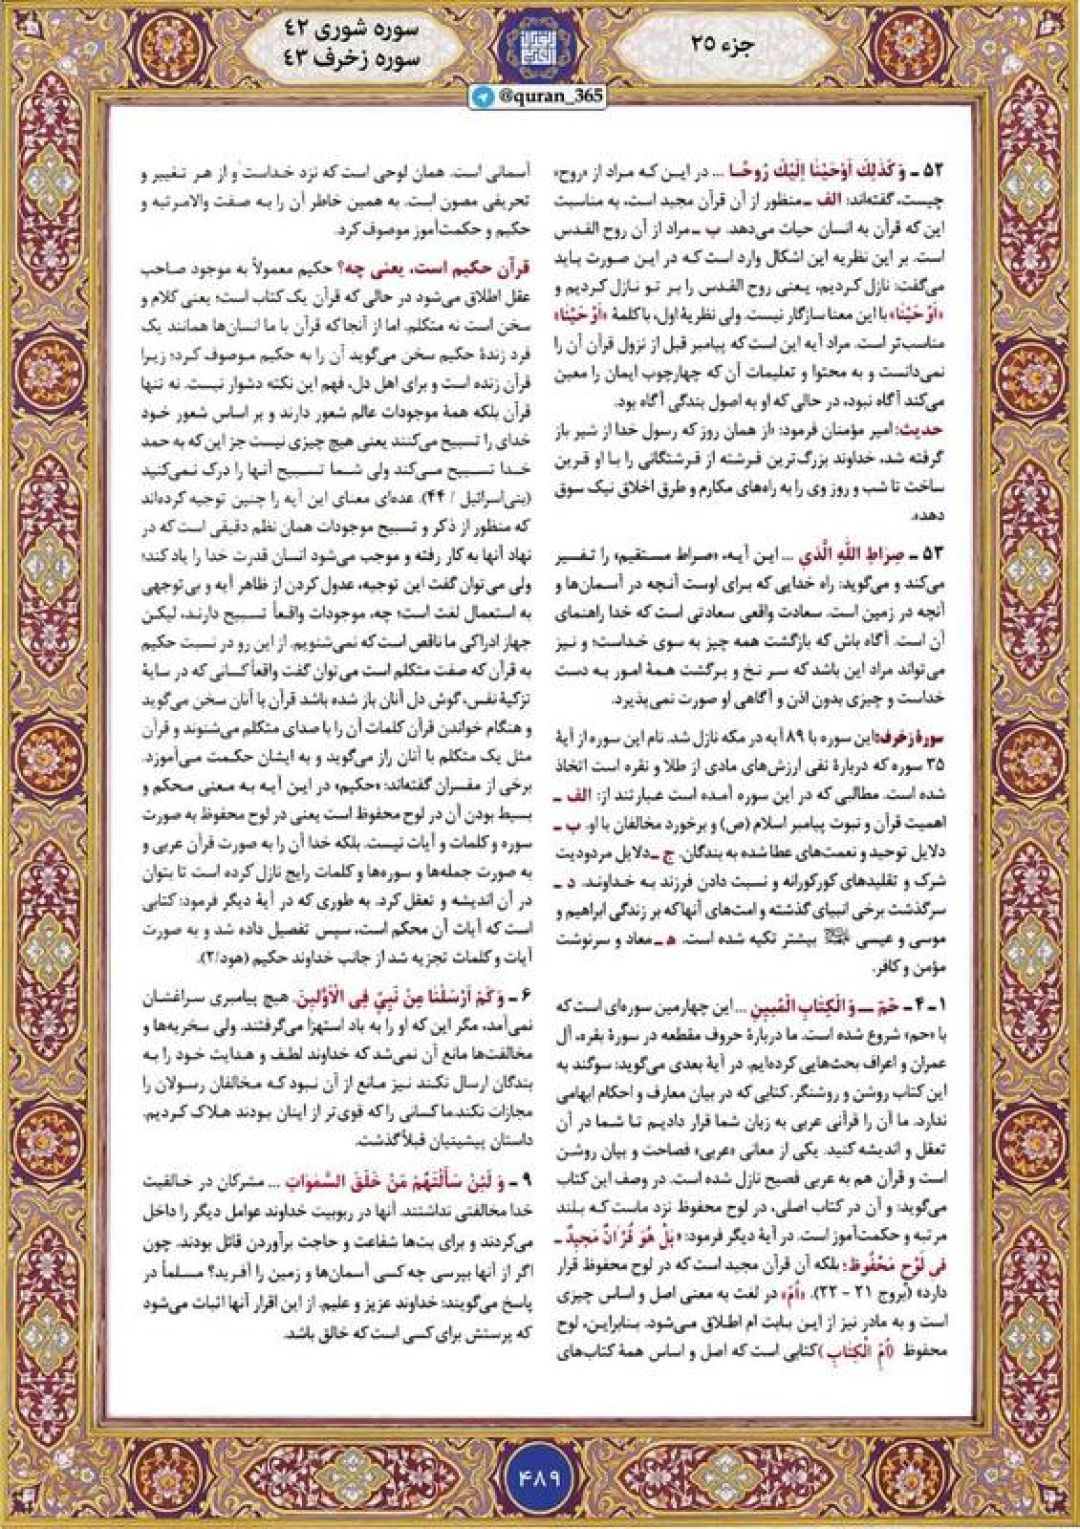 جزء ۲۵
سوره شوری ۴۲
سوره زخرف ۴۳
@quran_365
۵۲ ـ وَ كَذٰلِكَ اَوْحَيْنٰا اِلَيْكَ رُوحًا ... در این که مراد از «روح»
چیست، گفته‌اند: الف ـ منظور از آن قرآن مجید است، به مناسبت
این که قرآن به انسان حیات می‌دهد. ب ـ مراد از آن روح القدس
است. بر این نظریه این اشکال وارد است که در این صورت باید
می‌گفت: نازل کردیم، یعنی روح القدس را بر تو نازل کردیم و
«اَوْحَيْنٰا» با این معنا سازگار نیست. ولی نظریهٔ اول، با کلمهٔ «اَوْحَيْنٰا»
مناسب‌تر است. مراد آیه این است که پیامبر قبل از نزول قرآن آن را
نمی‌دانست و به محتوا و تعلیمات آن که چهارچوب ایمان را معین
می‌کند آگاه نبود، در حالی که او به اصول بندگی آگاه بود.
حدیث: امیر مؤمنان فرمود: «از همان روز که رسول خدا از شیر باز
گرفته شد، خداوند بزرگ‌ترین فرشته از فرشتگانی را با او قرین
ساخت تا شب و روز وی را به راه‌های مکارم و طرق اخلاق نیک سوق
دهد».
۵۳ ـ صِرٰاطِ اللّٰهِ الَّذي ... این آیه، «صراط مستقیم» را تفسیر
می‌کند و می‌گوید: راه خدایی که برای اوست آنچه در آسمان‌ها و
آنچه در زمین است. سعادت واقعی سعادتی است که خدا راهنمای
آن است. آگاه باش که بازگشت همه چیز به سوی خداست؛ و نیز
می‌تواند مراد این باشد که سر نخ و برگشت همهٔ امور به دست
خداست و چیزی بدون اذن و آگاهی او صورت نمی‌پذیرد.
سورهٔ زخرف: این سوره با ۸۹ آیه در مکه نازل شد. نام این سوره از آیهٔ
۳۵ سوره که دربارهٔ نفی ارزش‌های مادی از طلا و نقره است اتخاذ
شده است. مطالبی که در این سوره آمده است عبارتند از: الف ـ
اهمیت قرآن و نبوت پیامبر اسلام (ص) و برخورد مخالفان با او. ب ـ
دلایل توحید و نعمت‌های عطا شده به بندگان. ج ـ دلایل مردودیت
شرک و تقلیدهای کورکورانه و نسبت دادن فرزند به خداوند. د ـ
سرگذشت برخی انبیای گذشته و امت‌های آنها که بر زندگی ابراهیم و
موسی و عیسی بیشتر تکیه شده است. ه‍ ـ معاد و سرنوشت
مؤمن و کافر.
۱ ـ ۴ ـ حٰمٓ ـــ وَ الْكِتٰابِ الْمُبينِ ... این چهارمین سوره‌ای است که
با «حم» شروع شده است. ما دربارهٔ حروف مقطعه در سورهٔ بقره، آل
عمران و اعراف بحث‌هایی کرده‌ایم. در آیهٔ بعدی می‌گوید: سوگند به
این کتاب روشن و روشنگر. کتابی که در بیان معارف و احکام ابهامی
ندارد. ما آن را قرآنی عربی به زبان شما قرار دادیم تا شما در آن
تعقل و اندیشه کنید. یکی از معانی «عربی» فصاحت و بیان روشن
است و قرآن هم به عربی فصیح نازل شده است. در وصف این کتاب
می‌گوید: و آن در کتاب اصلی، در لوح محفوظ نزد ماست که بلند
مرتبه و حکمت‌آموز است. در آیهٔ دیگر فرمود: «بَلْ هُوَ قُرْاٰنٌ مَجيدٌ ـ
في لَوْحٍ مَحْفُوظٍ؛ بلکه آن قرآن مجید است که در لوح محفوظ قرار
دارد» (بروج ۲۱ - ۲۲). «اُمّ» در لغت به معنی اصل و اساس چیزی
است و به مادر نیز از این بابت ام اطلاق می‌شود. بنابراین، لوح
محفوظ (اُمّ الْكِتٰابِ) کتابی است که اصل و اساس همهٔ کتاب‌های
آسمانی است. همان لوحی است که نزد خداست و از هر تغییر و
تحریفی مصون است. به همین خاطر آن را به صفت والامرتبه و
حکیم و حکمت‌آموز موصوف کرد.
قرآن حکیم است، یعنی چه؟ حکیم معمولاً به موجود صاحب
عقل اطلاق می‌شود در حالی که قرآن یک کتاب است؛ یعنی کلام و
سخن است نه متکلم. اما از آنجا که قرآن با ما انسان‌ها همانند یک
فرد زندهٔ حکیم سخن می‌گوید آن را به حکیم موصوف کرد؛ زیرا
قرآن زنده است و برای اهل دل، فهم این نکته دشوار نیست. نه تنها
قرآن بلکه همهٔ موجودات عالم شعور دارند و بر اساس شعور خود
خدای را تسبیح می‌کنند یعنی هیچ چیزی نیست جز این که به حمد
خدا تسبیح می‌کند ولی شما تسبیح آنها را درک نمی‌کنید
(بنی‌اسرائیل / ۴۴). عده‌ای معنای این آیه را چنین توجیه کرده‌اند
که منظور از ذکر و تسبیح موجودات همان نظم دقیقی است که در
نهاد آنها به کار رفته و موجب می‌شود انسان قدرت خدا را یاد کند؛
ولی می‌توان گفت این توجیه، عدول کردن از ظاهر آیه و بی‌توجهی
به استعمال لغت است؛ چه، موجودات واقعاً تسبیح دارند، لیکن
جهاز ادراکی ما ناقص است که نمی‌شنویم. از این رو در نسبت حکیم
به قرآن که صفت متکلم است می‌توان گفت واقعاً کسانی که در سایهٔ
تزکیهٔ نفس، گوش دل آنان باز شده باشد قرآن با آنان سخن می‌گوید
و هنگام خواندن قرآن کلمات آن را با صدای متکلم می‌شنوند و قرآن
مثل یک متکلم با آنان راز می‌گوید و به ایشان حکمت می‌آموزد.
برخی از مفسران گفته‌اند: «حکیم» در این آیه به معنی محکم و
بسیط بودن آن در لوح محفوظ است یعنی در لوح محفوظ به صورت
سوره و کلمات و آیات نیست. بلکه خدا آن را به صورت قرآن عربی و
به صورت جمله‌ها و سوره‌ها و کلمات رایج نازل کرده است تا بتوان
در آن اندیشه و تعقل کرد. به طوری که در آیهٔ دیگر فرمود: کتابی
است که آیات آن محکم است، سپس تفصیل داده شد و به صورت
آیات و کلمات تجزیه شد از جانب خداوند حکیم (هود/۲).
۶ ـ وَ كَمْ اَرْسَلْنٰا مِنْ نَبِيٍّ فِي الْاَوَّلينَ. هیچ پیامبری سراغشان
نمی‌آمد، مگر این که او را به باد استهزا می‌گرفتند. ولی سخریه‌ها و
مخالفت‌ها مانع آن نمی‌شد که خداوند لطف و هدایت خود را به
بندگان ارسال نکند نیز مانع از آن نبود که مخالفان رسولان را
مجازات نکند. ما کسانی را که قوی‌تر از اینان بودند هلاک کردیم.
داستان پیشینیان قبلاً گذشت.
۹ ـ وَ لَئِنْ سَاَلْتَهُمْ مَنْ خَلَقَ السَّمٰوٰاتِ ... مشرکان در خالقیت
خدا مخالفتی نداشتند. آنها در ربوبیت خداوند عوامل دیگر را داخل
می‌کردند و برای بت‌ها شفاعت و حاجت برآوردن قائل بودند. چون
اگر از آنها بپرسی چه کسی آسمان‌ها و زمین را آفرید؟ مسلماً در
پاسخ می‌گویند: خداوند عزیز و علیم. از این اقرار آنها اثبات می‌شود
که پرستش برای کسی است که خالق باشد.
۴۸۹